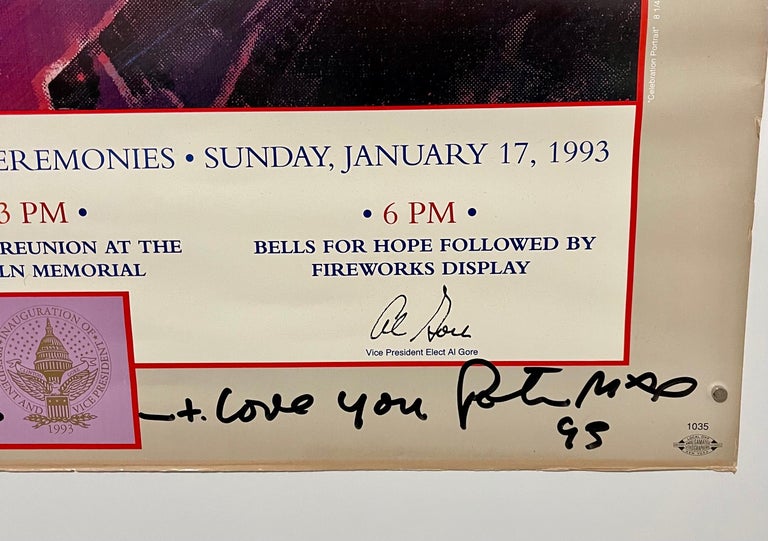 "Celebration Portrait" 8 1/4
EREMONIES • SUNDAY, JANUARY 17, 1993
3 PM • • 6 PM •
REUNION AT THE
LN MEMORIAL
BELLS FOR HOPE FOLLOWED BY
FIREWORKS DISPLAY
Al Gore
Vice President Elect Al Gore
INAUGURATION OF
PRESIDENT AND VICE PRESIDENT
1993
+. Love you Peter Max
95
1035